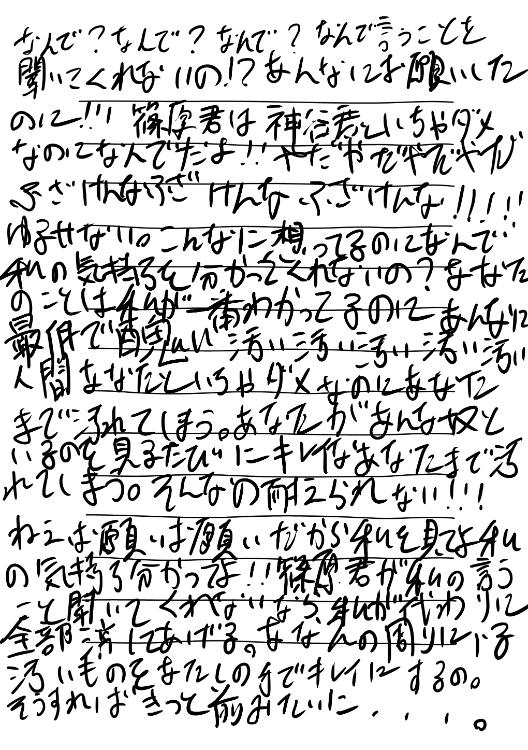 なんで？なんで？なんで？なんで言うことを
聞いてくれないの!?あんなにお願いした
のに!!!篠原君は神谷君といちゃダメ
なのになんでだよ!!やだやだやだやだ
ふざけんなふざけんなふざけんな!!!!!
ゆるせない。こんなに想ってるのになんで
私の気持ちを分かってくれないの？あなた
のことは私が一番わかってるのにあんなに
最低で醜い汚い汚い汚い汚い汚い
人間あなたといちゃダメなのにあなた
まで汚れてしまう。あなたがあんな奴と
いるのを見るたびにキレイなあなたまで汚
れてしまう。そんなの耐えられない!!!
ねえお願いお願いだから私を見てよ私
の気持ち分かってよ!!篠原君が私の言う
こと聞いてくれないなら、私が代わりに
全部消してあげる。あなたの周りにいる
汚いものをわたしの手でキレイにするの。
そうすればきっと前みたいに....。